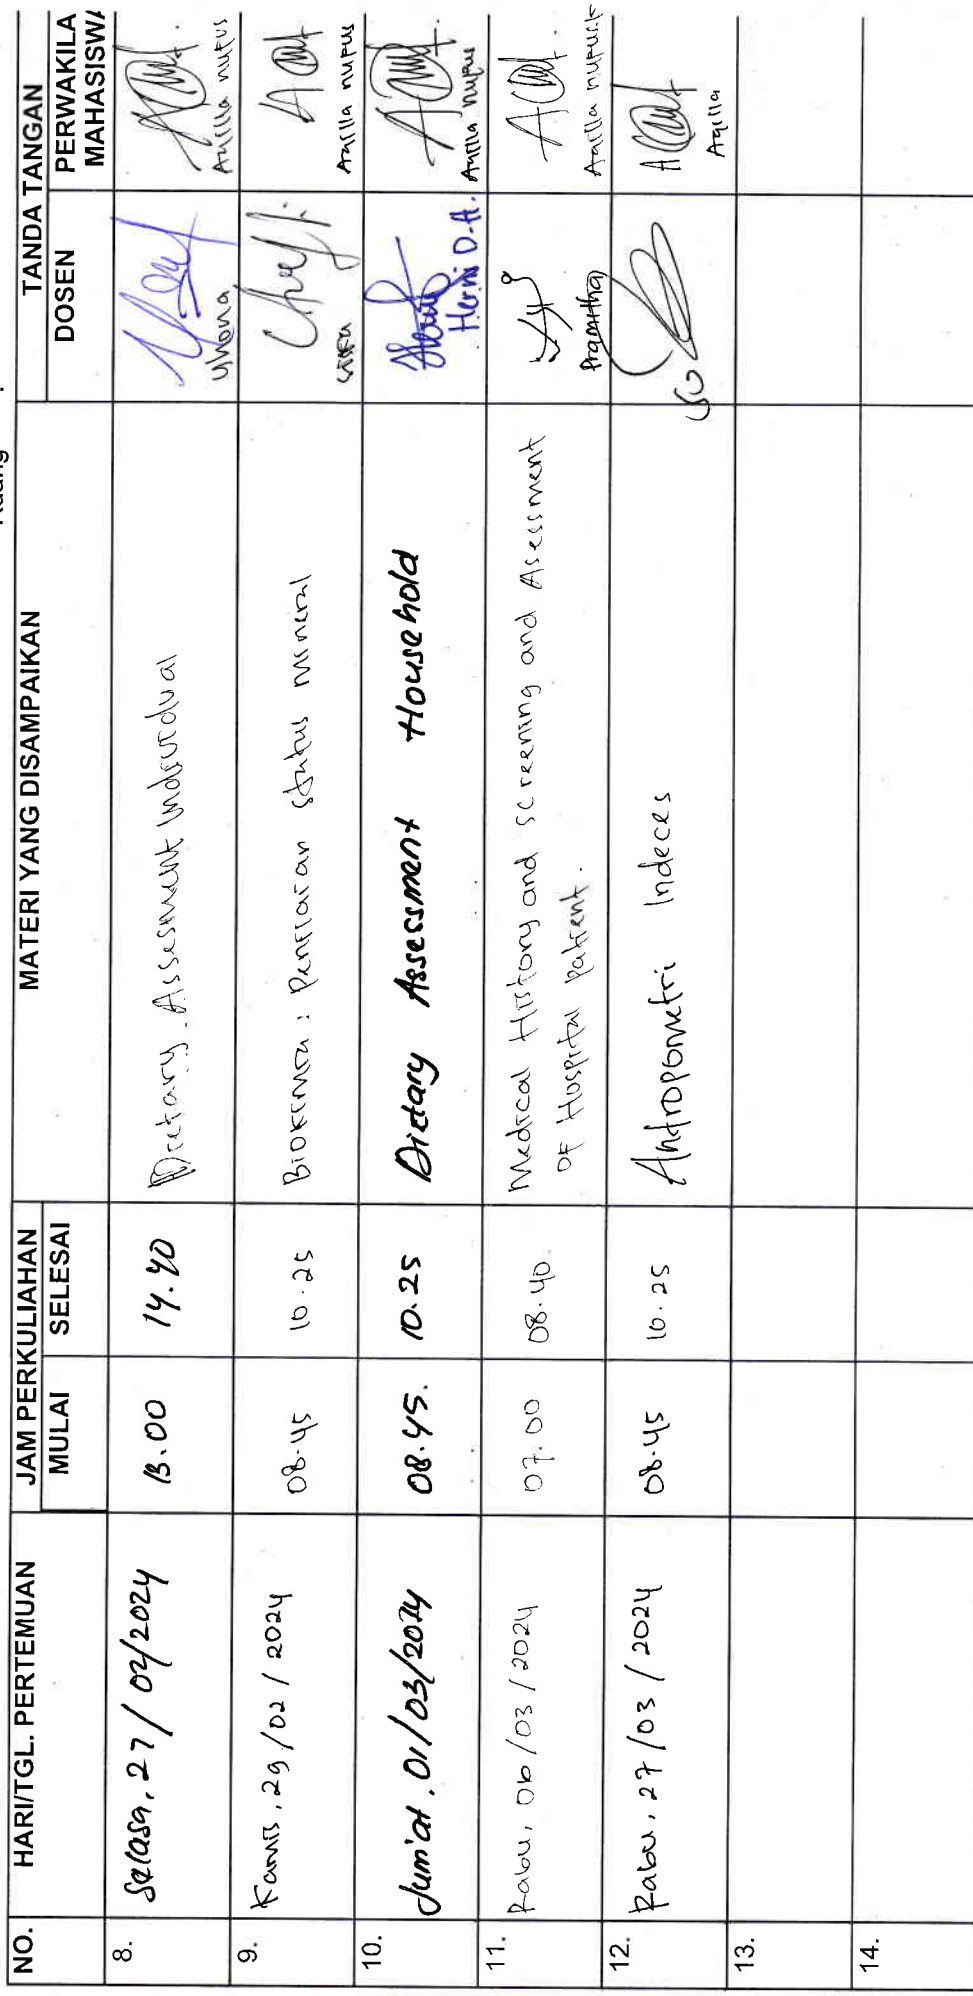 NO. HARI/TGL. PERTEMUAN JAM PERKULIAHAN MATERI YANG DISAMPAIKAN TANDA TANGAN
MULAI SELESAI DOSEN PERWAKILA
MAHASISWA
8. Selasa, 27/02/2024 13.00 14.40 Dietary Assesment Individual
Aqilla nufus
9. Kamis, 29/02/2024 08.45 10.25 Biokimia : Penilaian status mineral
Aqilla nufus
10. Jum'at, 01/03/2024 08.45. 10.25 Dietary Assessment Household Hermi D.A.
Aqilla nufus
11. Rabu, 06/03/2024 07.00 08.40. Medical History and screening and Asessment
of Hospital patient. Pramitha Aqilla nufus.k
12. Rabu, 27/03/2024 08.45 10.25 Antropometri Indeces
Aqilla
13.
14.